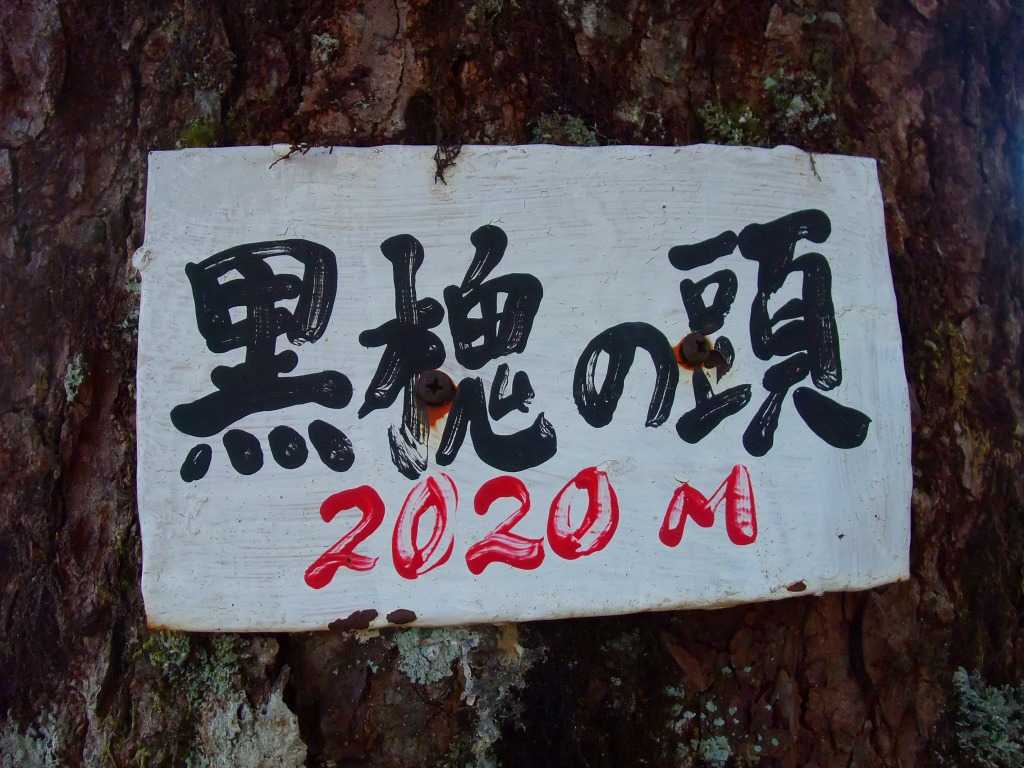 黒槐の頭
2020M